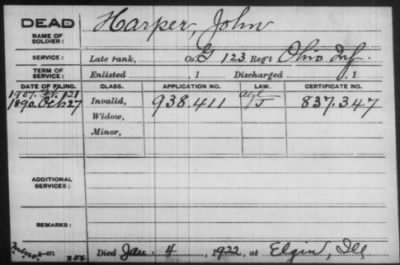 DEAD
NAME OF SOLDIER:
Harper, John
SERVICE: Late rank, Co. G 123 Reg't Ohio Inf.
TERM OF SERVICE: Enlisted , 1 Discharged , 1
DATE OF FILING. CLASS. APPLICATION NO. LAW. CERTIFICATE NO.
1890 Oct 27 Invalid, 938.411 J 837.347
Widow,
Minor,
ADDITIONAL SERVICES:
REMARKS:
Died Jan. 4 1922, at Elgin, Ill